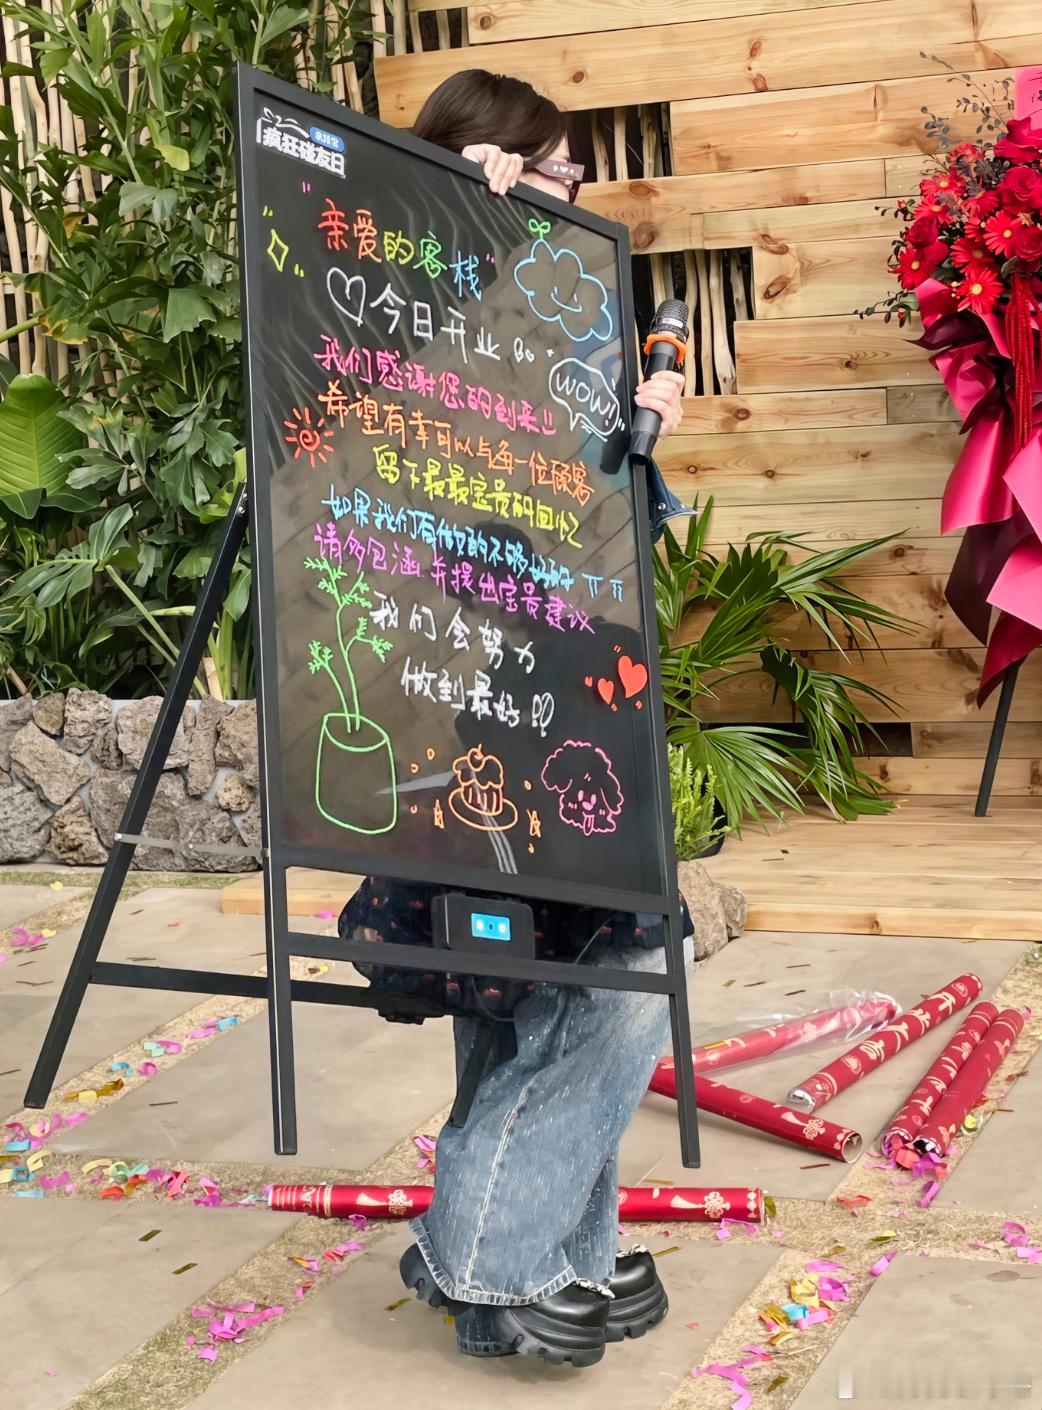 疯狂碰友日
"亲爱的客栈"
今日开业
我们感谢您的到来!!
WOW!
希望有幸可以与每一位顾客
留下最最宝贵的回忆
如果我们有做的不够好的 TT
请多包涵 并提出宝贵建议
我们会努力
做到最好!!